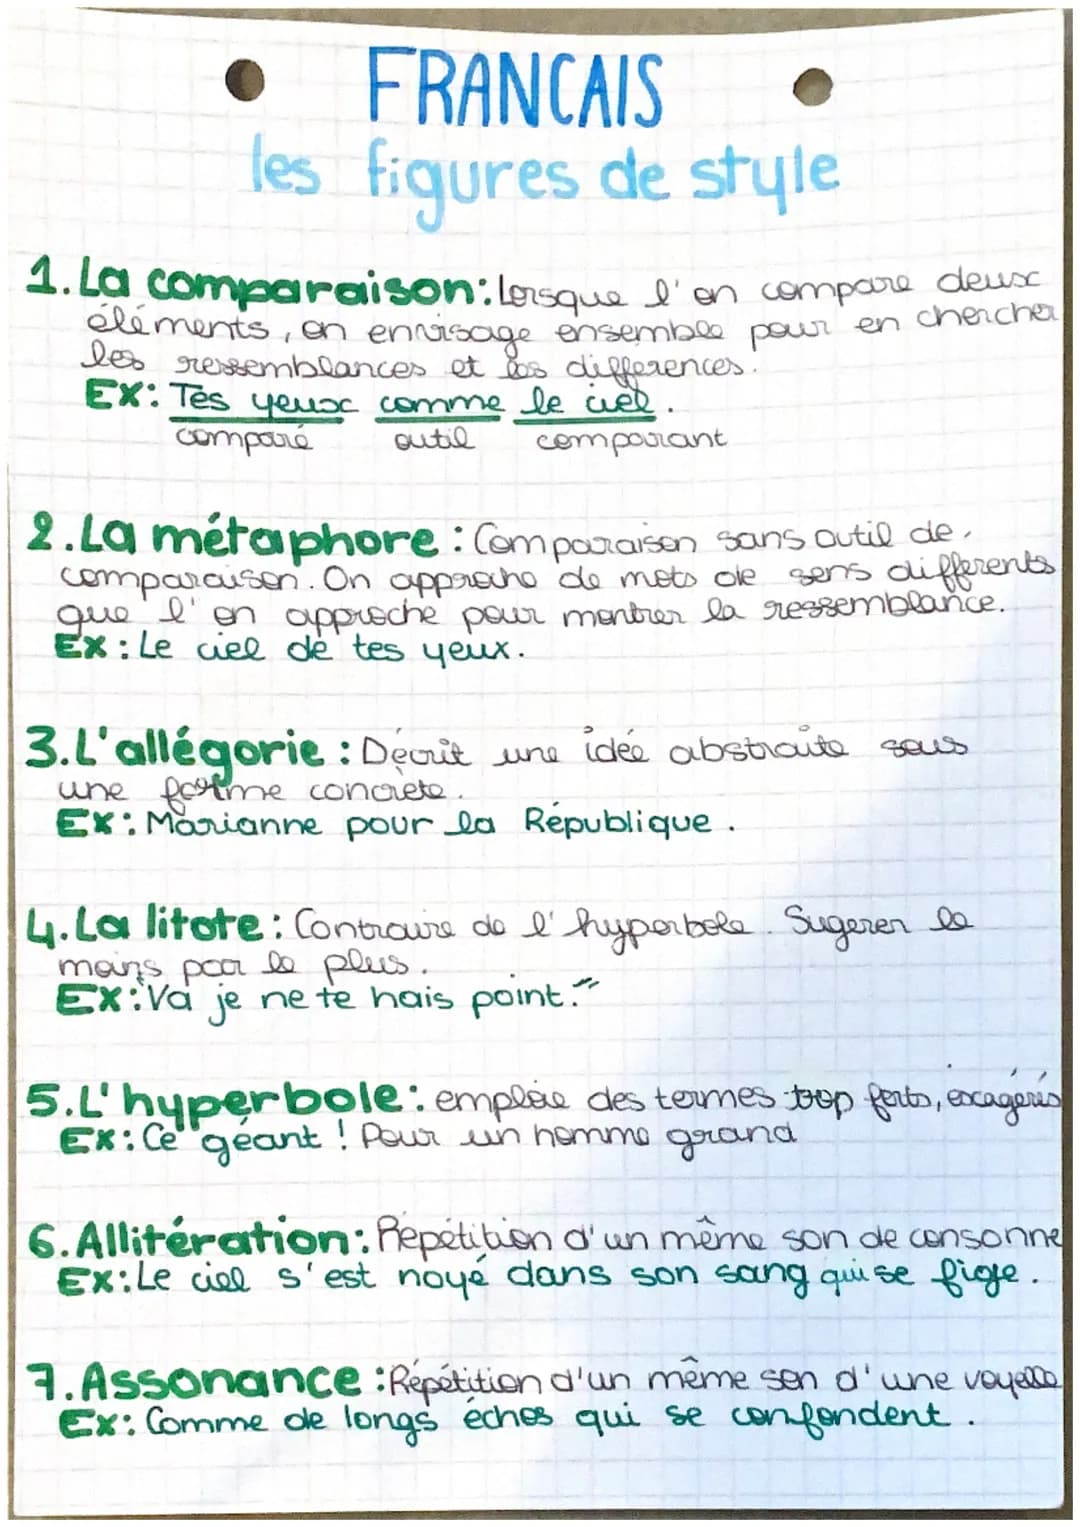 FRANCAIS
les figures de style
1. La comparaison: lorsque l'on compare deux
éléments, on envisage ensemble pour en chercher
les ressemblances et les differences.
EX: Tes yeux comme le ciel.
comparé outil comparant
2. La métaphore: Comparaison sans outil de
comparaison. On approche de mots de sens differents
que l'on approche pour montrer la ressemblance.
Ex: Le ciel de tes yeux.
3. L'allégorie: Décrit une idée abstraite sous
une forme concrète.
Ex: Marianne pour la République.
4. La litote: Contraire de l'hyperbole. Sugerer le
moins pour le plus.
EX: "Va je ne te hais point."
5. L'hyperbole: emploie des termes trop forts, exagérés
Ex: Ce géant ! Pour un homme grand
6. Allitération: Répétition d'un même son de consonne
Ex: Le ciel s'est noyé dans son sang qui se fige.
7. Assonance: Répétition d'un même son d'une voyelle
Ex: Comme de longs échos qui se confondent.